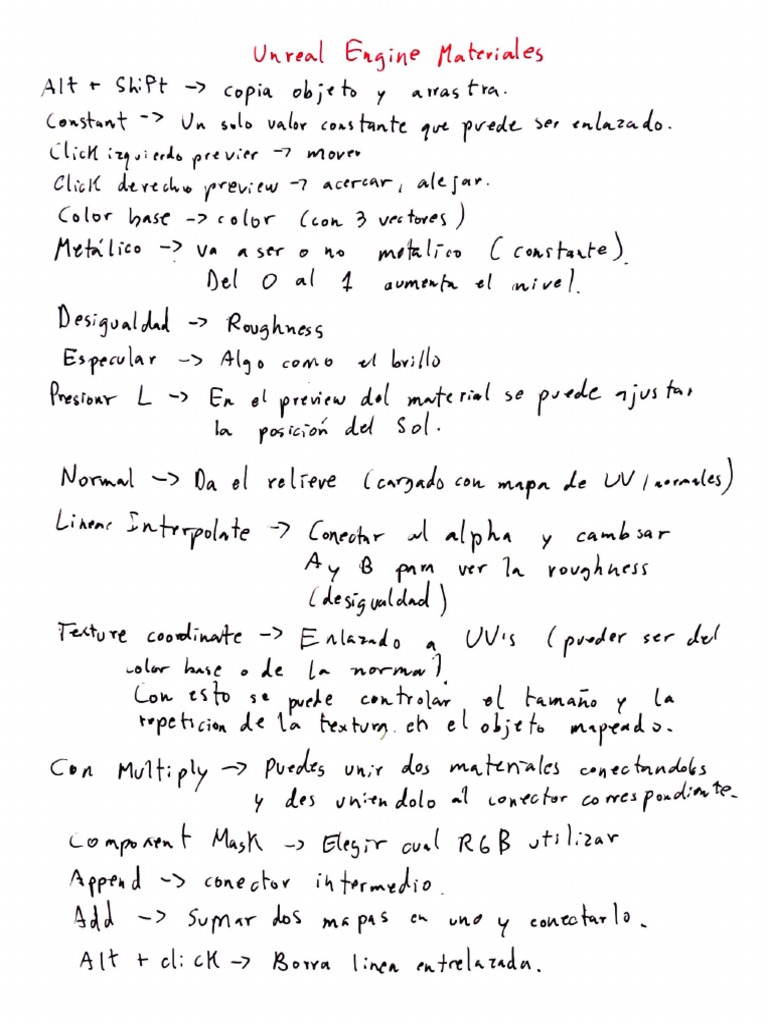 Unreal Engine Materiales
Alt + Shift -> copia objeto y arrastra.
Constant -> Un solo valor constante que puede ser enlazado.
Click izquierdo previer -> mover
Click derecho preview -> acercar, alejar.
Color base -> color (con 3 vectores)
Metálico -> va a ser o no metalico (constante).
Del 0 al 1 aumenta el nivel.
Desigualdad -> Roughness
Especular -> Algo como el brillo
Presionr L -> En el preview del material se puede ajustar
la posición del Sol.
Normal -> Da el relieve (cargado con mapa de UV/normales)
Linear Interpolate -> Conectar al alpha y cambiar
A y B para ver la roughness
(desigualdad)
Texture coordinate -> Enlazado a UV's (pueder ser del
color base o de la normal).
Con esto se puede controlar el tamaño y la
repeticion de la textura en el objeto mapeado.
Con Multiply -> Puedes unir dos materiales conectandolos
y des uniendolo al conector correspondiente.
Component Mask -> Elegir cual RGB utilizar
Append -> conector intermedio.
Add -> Sumar dos mapas en uno y conectarlo.
Alt + click -> Borra linea entrelazada.